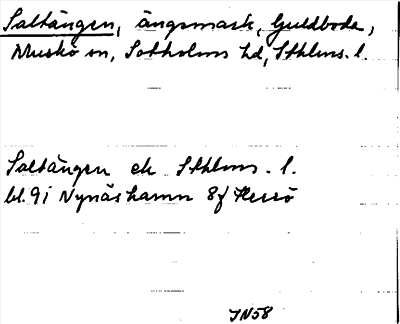 Saltängen, ängsmark, Guldboda,
Muskö sn, Sotholms hd, Sthlms. l.
Saltängen ek Sthlms. l.
bl. 9i Nynäshamn 8f Herrö
IN58